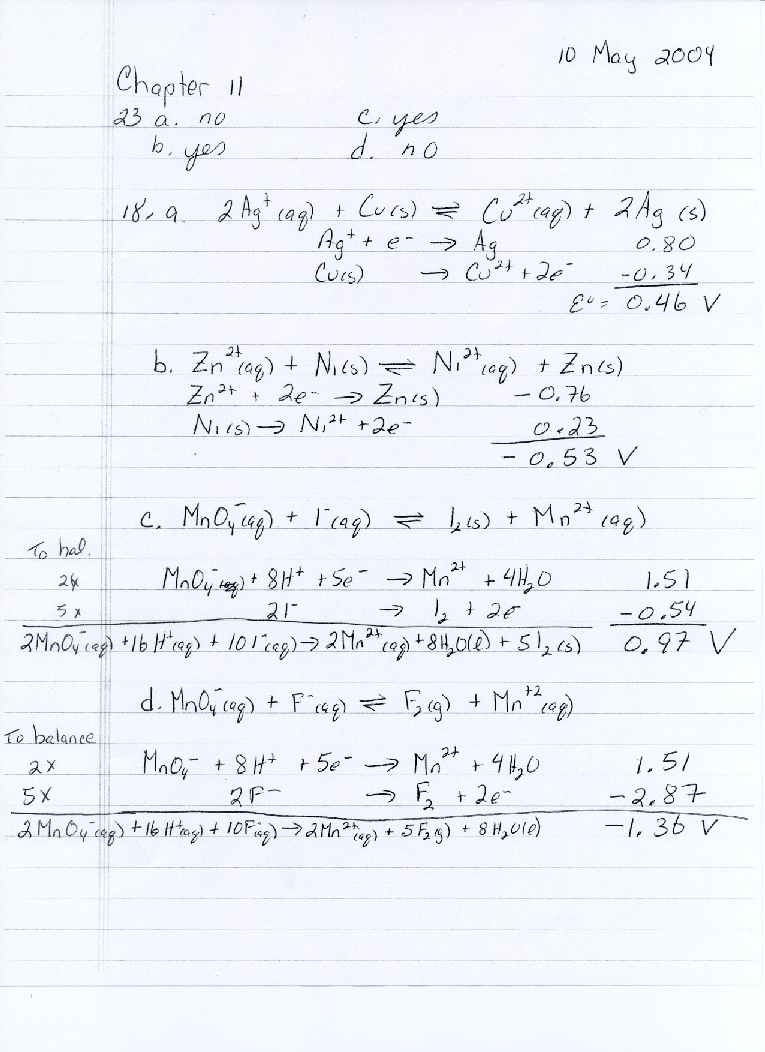 10 May 2004
Chapter 11
23 a. no c. yes
b. yes d. no
18. a. 2Ag⁺(aq) + Cu(s) ⇌ Cu²⁺(aq) + 2Ag (s)
Ag⁺ + e⁻ → Ag 0.80
Cu(s) → Cu²⁺ + 2e⁻ -0.34
ℰ° = 0.46 V
b. Zn²⁺(aq) + Ni(s) ⇌ Ni²⁺(aq) + Zn(s)
Zn²⁺ + 2e⁻ → Zn(s) -0.76
Ni(s) → Ni²⁺ + 2e⁻ 0.23
-0.53 V
c. MnO₄⁻(aq) + I⁻(aq) ⇌ I₂(s) + Mn²⁺(aq)
To bal.
2x MnO₄⁻ + 8H⁺ + 5e⁻ → Mn²⁺ + 4H₂O 1.51
5x 2I⁻ → I₂ + 2e⁻ -0.54
2MnO₄⁻(aq) + 16H⁺(aq) + 10I⁻(aq) → 2Mn²⁺(aq) + 8H₂O(l) + 5I₂(s) 0.97 V
d. MnO₄⁻(aq) + F⁻(aq) ⇌ F₂(g) + Mn⁺²(aq)
To balance
2x MnO₄⁻ + 8H⁺ + 5e⁻ → Mn²⁺ + 4H₂O 1.51
5x 2F⁻ → F₂ + 2e⁻ -2.87
2MnO₄⁻(aq) + 16H⁺(aq) + 10F⁻(aq) → 2Mn²⁺(aq) + 5F₂(g) + 8H₂O(l) -1.36 V